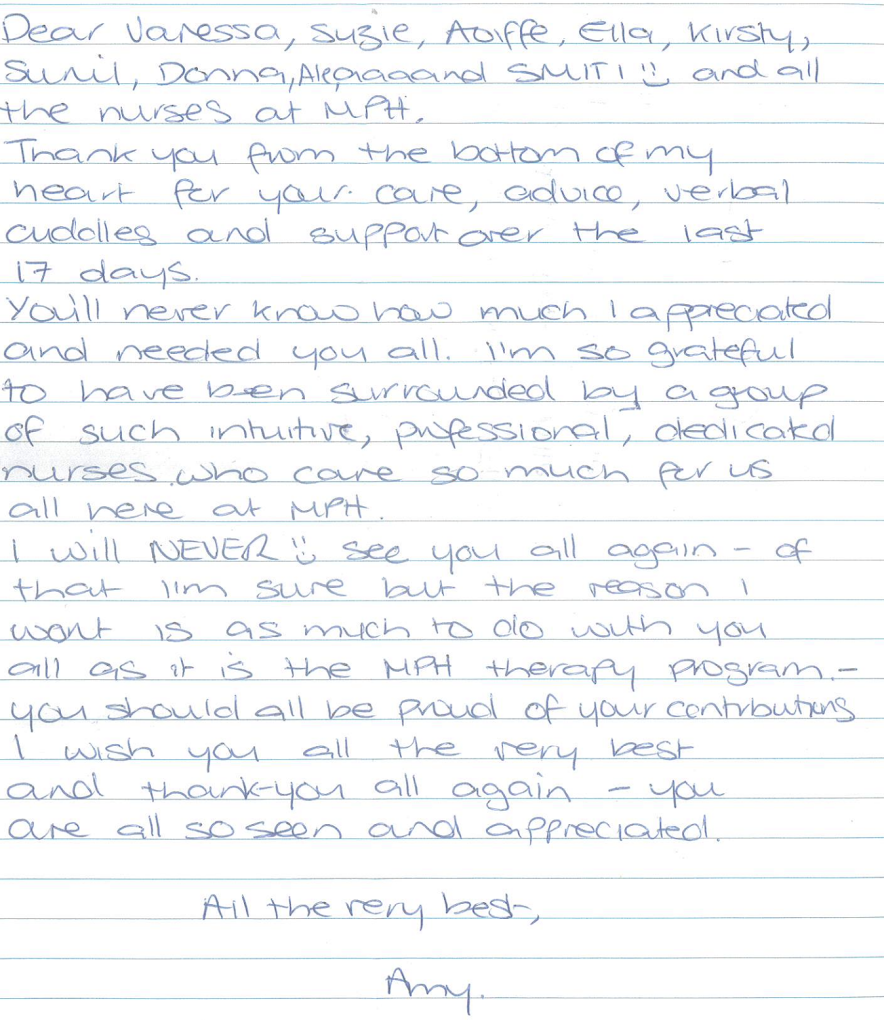 Dear Vanessa, Suzie, Aoiffe, Ella, Kirsty,
Sunil, Donna, and SMITI :) and all
the nurses at MPH.
Thank you from the bottom of my
heart for your care, advice, verbal
cuddles and support over the last
17 days.
You'll never know how much I appreciated
and needed you all. I'm so grateful
to have been surrounded by a group
of such intuitive, professional, dedicated
nurses who care so much for us
all here at MPH.
I will NEVER :) see you all again - of
that I'm sure but the reason I
wont is as much to do with you
all as it is the MPH therapy program. -
you should all be proud of your contributions
I wish you all the very best
and thank-you all again - you
are all so seen and appreciated.
All the very best,
Amy.